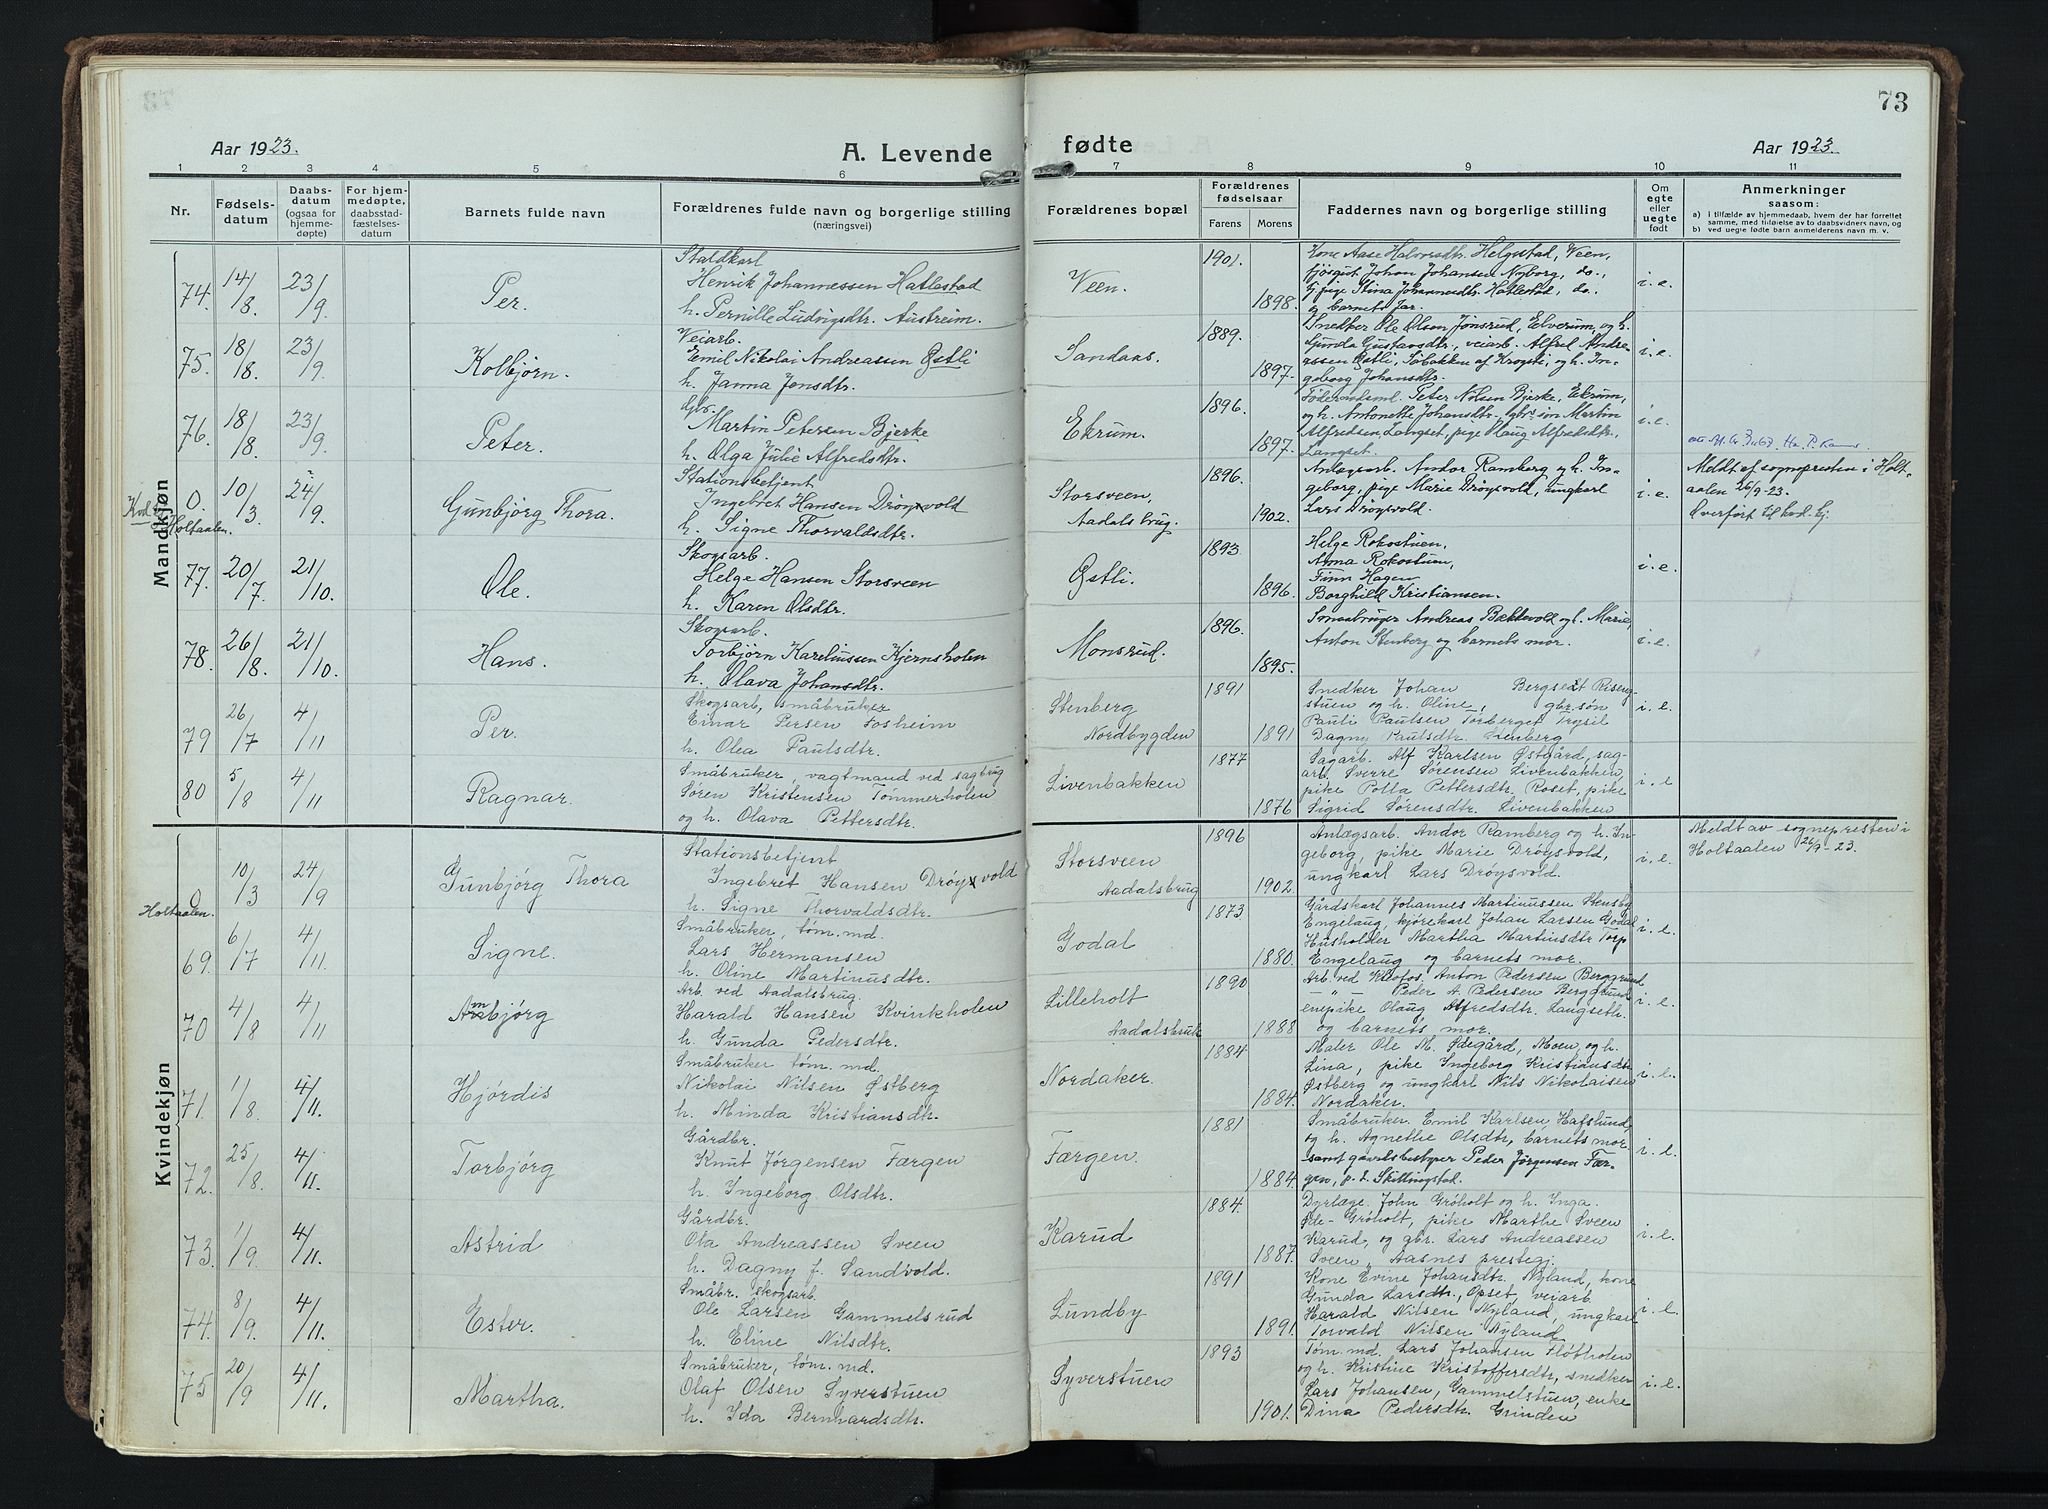 73
Aar 1923.
A. Levende fødte
Aar 1923.
1 2 3 4 5 6 7 8 9 10 11
Nr.
Fødsels-
datum
Daabs-
datum
(ogsaa for
hjemme-
døpte)
For hjem-
medøpte,
daabsstad-
fæstelses-
datum
Barnets fulde navn
Forældrenes fulde navn og borgerlige stilling
(næringsvei)
Forældrenes bopæl
Forældrenes
fødselsaar
Farens Morens
Faddernes navn og borgerlige stilling
Om
egte
eller
uegte
født
Anmerkninger
saasom:
a) i tilfælde av hjemmedaab, hvem der har forrettet
samme, med tilføielse av to daabsvidners navn, og
b) ved uegte født barn anmelderens navn m. v.
Mandkjøn
74. 14/8. 23/9. Per.
Staldkarl
Henrik Johannessen Hatlestad
h. Pernille Ludvigsdtr. Austreim.
Veen.
1901. 1898.
Kone Aase Halvorsdtr. Helgestad, Veen,
fjøsgut Johan Johansen Nyborg, do.,
tj. pige Stina Johannesdtr. Hatlestad, do.,
og barnets far
i. e.
75. 18/8. 23/9. Kolbjørn.
Veiarb.
Emil Nikolai Andreassen Østli
h. Janna Jonsdtr.
Sandaas.
1889. 1897.
Snedker Ole Olsen Jønsrud, Elverum, og h.
Gunda Gustavsdtr., veiarb. Alfred Andre-
assen Østli, Søbakken af Krogsti, og h. In-
geborg Johansdtr.
i. e.
76. 18/8. 23/9. Peter.
Gbr.
Martin Petersen Bjerke
h. Olga Julie Alfredsdtr.
Ekrum.
1896. 1897.
Føderaadsml. Peter Nilsen Bjerke, Ekrum,
og h. Antonette Johansdtr., gbr. søn Martin
Alfredsen Langset, pige Olaug Alfredsdtr.,
Langset.
i. e.
Kvk.
Holtaalen.
0. 10/3. 24/9. Gunbjørg Thora.
Stationsbetjent
Ingebret Hansen Drøyvold
h. Signe Thorvaldsdtr.
Storsveen,
Aadalsbrug.
1896. 1902.
Anlægsarb. Andor Ramberg og h. In-
geborg, pige Marie Drøysvold, ungkarl
Lars Drøysvold.
i. e.
Meldt af sognepresten i Holt-
aalen 26/9-23.
Overført til kvd. kj.
77. 20/7. 21/10. Ole.
Skogsarb.
Helge Hansen Storsveen
h. Karen Olsdtr.
Østli.
1893. 1896.
Helge Rokostuen,
Anna Rokostuen,
Finn Hagen
Borghild Kristiansen.
i. e.
78. 26/8. 21/10. Hans.
Skogsarb.
Torbjørn Kareliussen Kjernsholen
h. Olava Johansdtr.
Monsrud.
1896. 1895.
Smaabruger Andreas Bækkevold og h. Marie,
Anton Stenberg og barnets mor.
i. e.
79 26/7 4/11 Per.
Skogsarb, småbruker
Einar Persen Fosheim
h. Olea Paulsdtr.
Stenberg
Nordbygden
1891 1891
Snedker Johan Bergseet Riseng-
stuen og h. Oline, gbr. søn
Pauli Paulsen Torberget Trysil
Dagny Paulsdtr. Stenberg
i. e.
80 5/8 4/11 Ragnar.
Småbruker, vagtmand ved sagbrug
Søren Kristensen Tømmerholen
og h. Olava Pettersdtr.
Livenbakken
1877 1876
Sagarb. Alf Karlsen Østgård, sag-
arb. Sverre Sørensen Livenbakken,
pike Polla Pettersdtr. Roset, pike
Sigrid Sørensdtr. Livenbakken
i. e
Kvindekjøn
0 10/3 24/9 Gunbjørg Thora
Holtaalen.
Stationsbetjent
Ingebret Hansen Drøyvold
h. Signe Thorvaldsdtr.
Storsveen
Aadalsbrug
1896 1902.
Anlægsarb. Andor Ramberg og h. In-
geborg, pike Marie Drøysvold,
ungkarl Lars Drøysvold.
i. e.
Meldt av sognepresten i
Holtaalen 26/9-23.
69. 6/7 4/11. Signe.
Småbruker, tøm. md.
Lars Hermansen
h. Oline Martinusdtr.
Godal
1873 1880.
Gårdskarl Johannes Martinussen Stensby
Engelaug, kjørekarl Johan Larsen Godal
Husholder Martha Martinsdtr Torp
Engelaug og barnets mor.
i. e.
70 4/8 4/11 Ambjørg
Arb. ved Aadalsbrug.
Harald Hansen Kvinkholen
h. Gunda Pedersdtr.
Lilleholt
Aadalsbruk
1890 1888
Arb. ved Klevfos, Anton Pedersen Berggrund
— " — Peder A. Pedersen Berggrund
enepike Olaug Alfredsdtr. Langseth.
og barnets mor.
i. e.
71. 1/8 4/11. Hjørdis
Småbruker tøm. md.
Nikolai Nilsen Østberg
h. Minda Kristiansdtr.
Nordaker.
1884 1884.
Maler Ole M. Ødegård, Moen, og h.
Lina, pike Ingeborg Kristiansdtr
Østberg og ungkarl Nils Nikolaisen
Nordaker.
i. e.
72. 25/8. 4/11. Torbjørg
Gårdbr.
Knut Jørgensen Færgen
h. Ingeborg Olsdtr.
Færgen
1881 1884.
Småbruker Emil Karlsen Hafslund,
og h. Agnethe Olsdtr, barnets mor
samt gaardsbestyrer Peder Jørgensen Fær-
gen, p. t. Skillingstad.
i. e.
73. 1/9. 4/11. Astrid
Gårdbr.
Ola Andreassen Sveen
h. Dagny f. Sandvold.
Karud
1884. 1887.
Dyrlæge John Grøholt og h. Inga.
Øde-Grøholt, pike Marthe Sveen
Karud, og gbr. Lars Andreassen
Sveen, Aasnes prestegj.
i. e.
74. 8/9. 4/11. Ester.
Småbr. skogsarb.
Ole Larsen Gammelsrud
h. Eline Nilsdtr.
Lundby
1891 1891.
Kone Evine Johansdtr. Nyland, kone
Gunda Larsdtr., Opset, veiarb.
Harald Nilsen Nyland, ungkarl
Torvald Nilsen Nyland
i. e.
75 20/9 4/11. Martha.
Småbruker, tøm. md.
Olaf Olsen Syverstuen
h. Ida Bernhardsdtr.
Syverstuen
1893 1901.
Tøm. md. Lars Johansen Fløtholen
og h. Kristine Kristoffersdtr, snedker
Lars Johansen, Gammelstuen, enke
Dina Pedersdtr. Grinden
i. e.